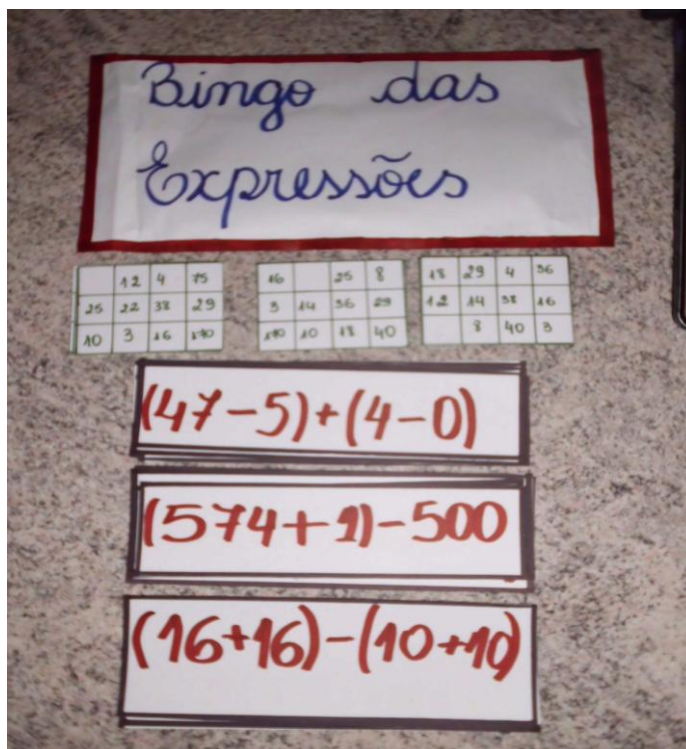 Bingo das
Expressões
12 4 75
25 22 38 29
10 3 16 170
16 25 8
3 14 36 29
170 10 18 40
18 29 4 36
12 14 38 16
8 40 3
(47-5)+(4-0)
(574+1)-500
(16+16)-(10+10)